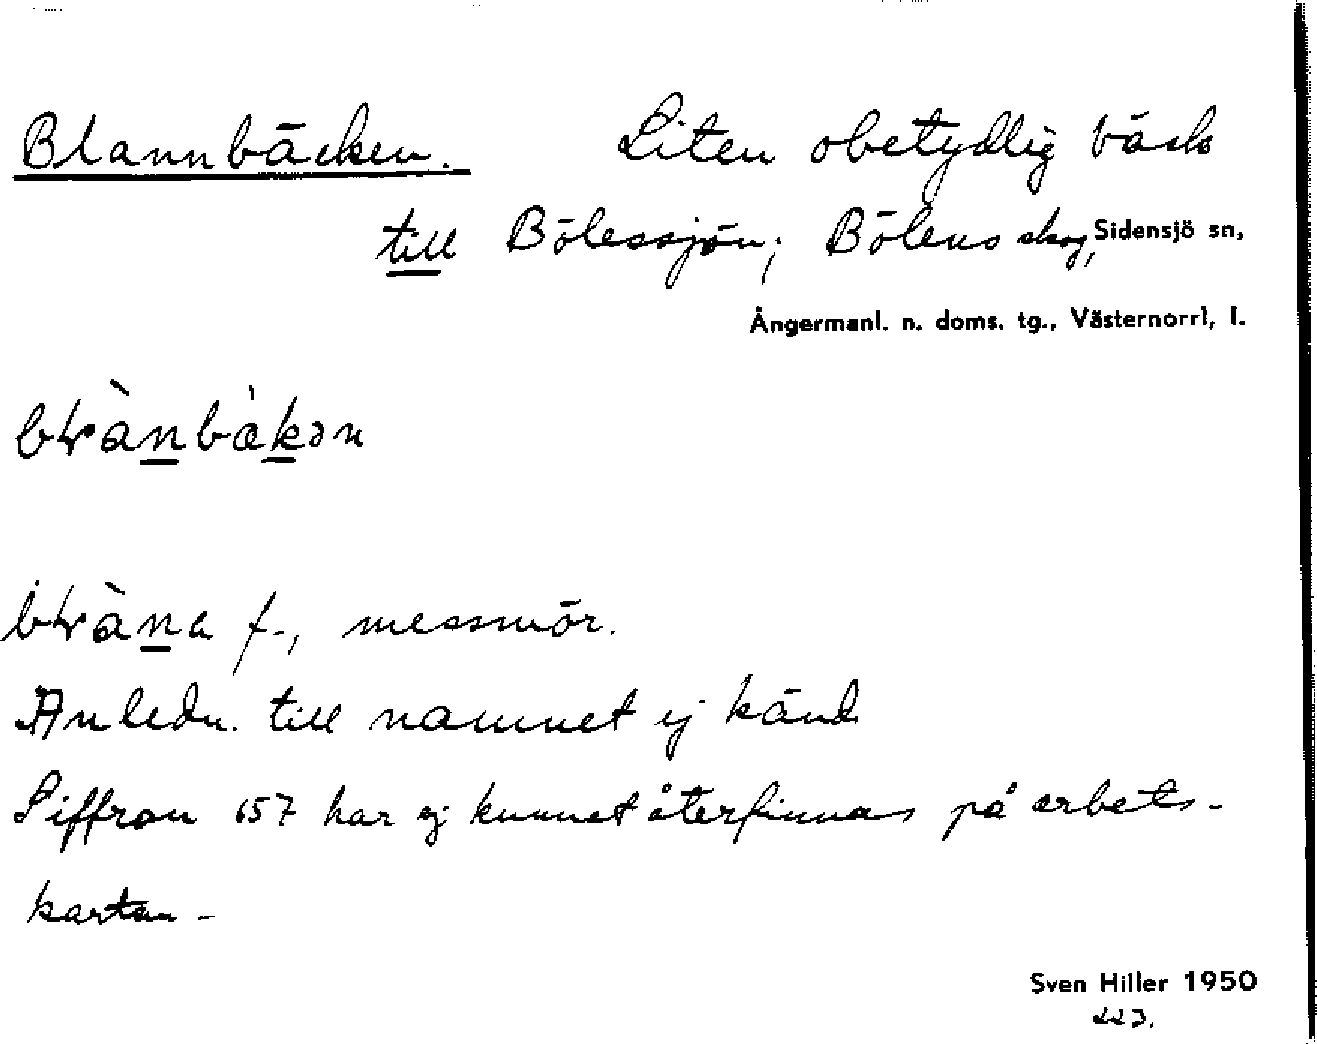 Blannbäcken. Liten obetydlig bäck
till Bölessjön; Bölens skog, Sidensjö sn,
Ångermanl. n. doms. tg., Västernorrl, l.
f., messmör.
Anledn. till namnet ej känd
Siffran 657 har ej kunnat återfinnas på arbets-
kartan -
Sven Hiller 1950
223.